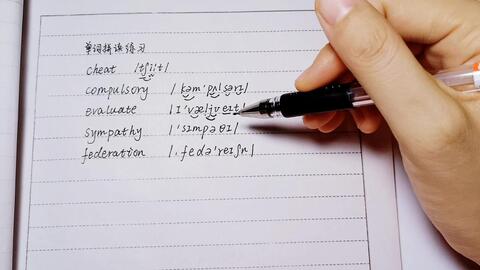 单词拼读练习
cheat /tʃiːt/
compulsory /kəmˈpʌlsərɪ/
evaluate /ɪˈvæljʊeɪt/
sympathy /ˈsɪmpəθɪ/
federation /ˌfedəˈreɪʃn/